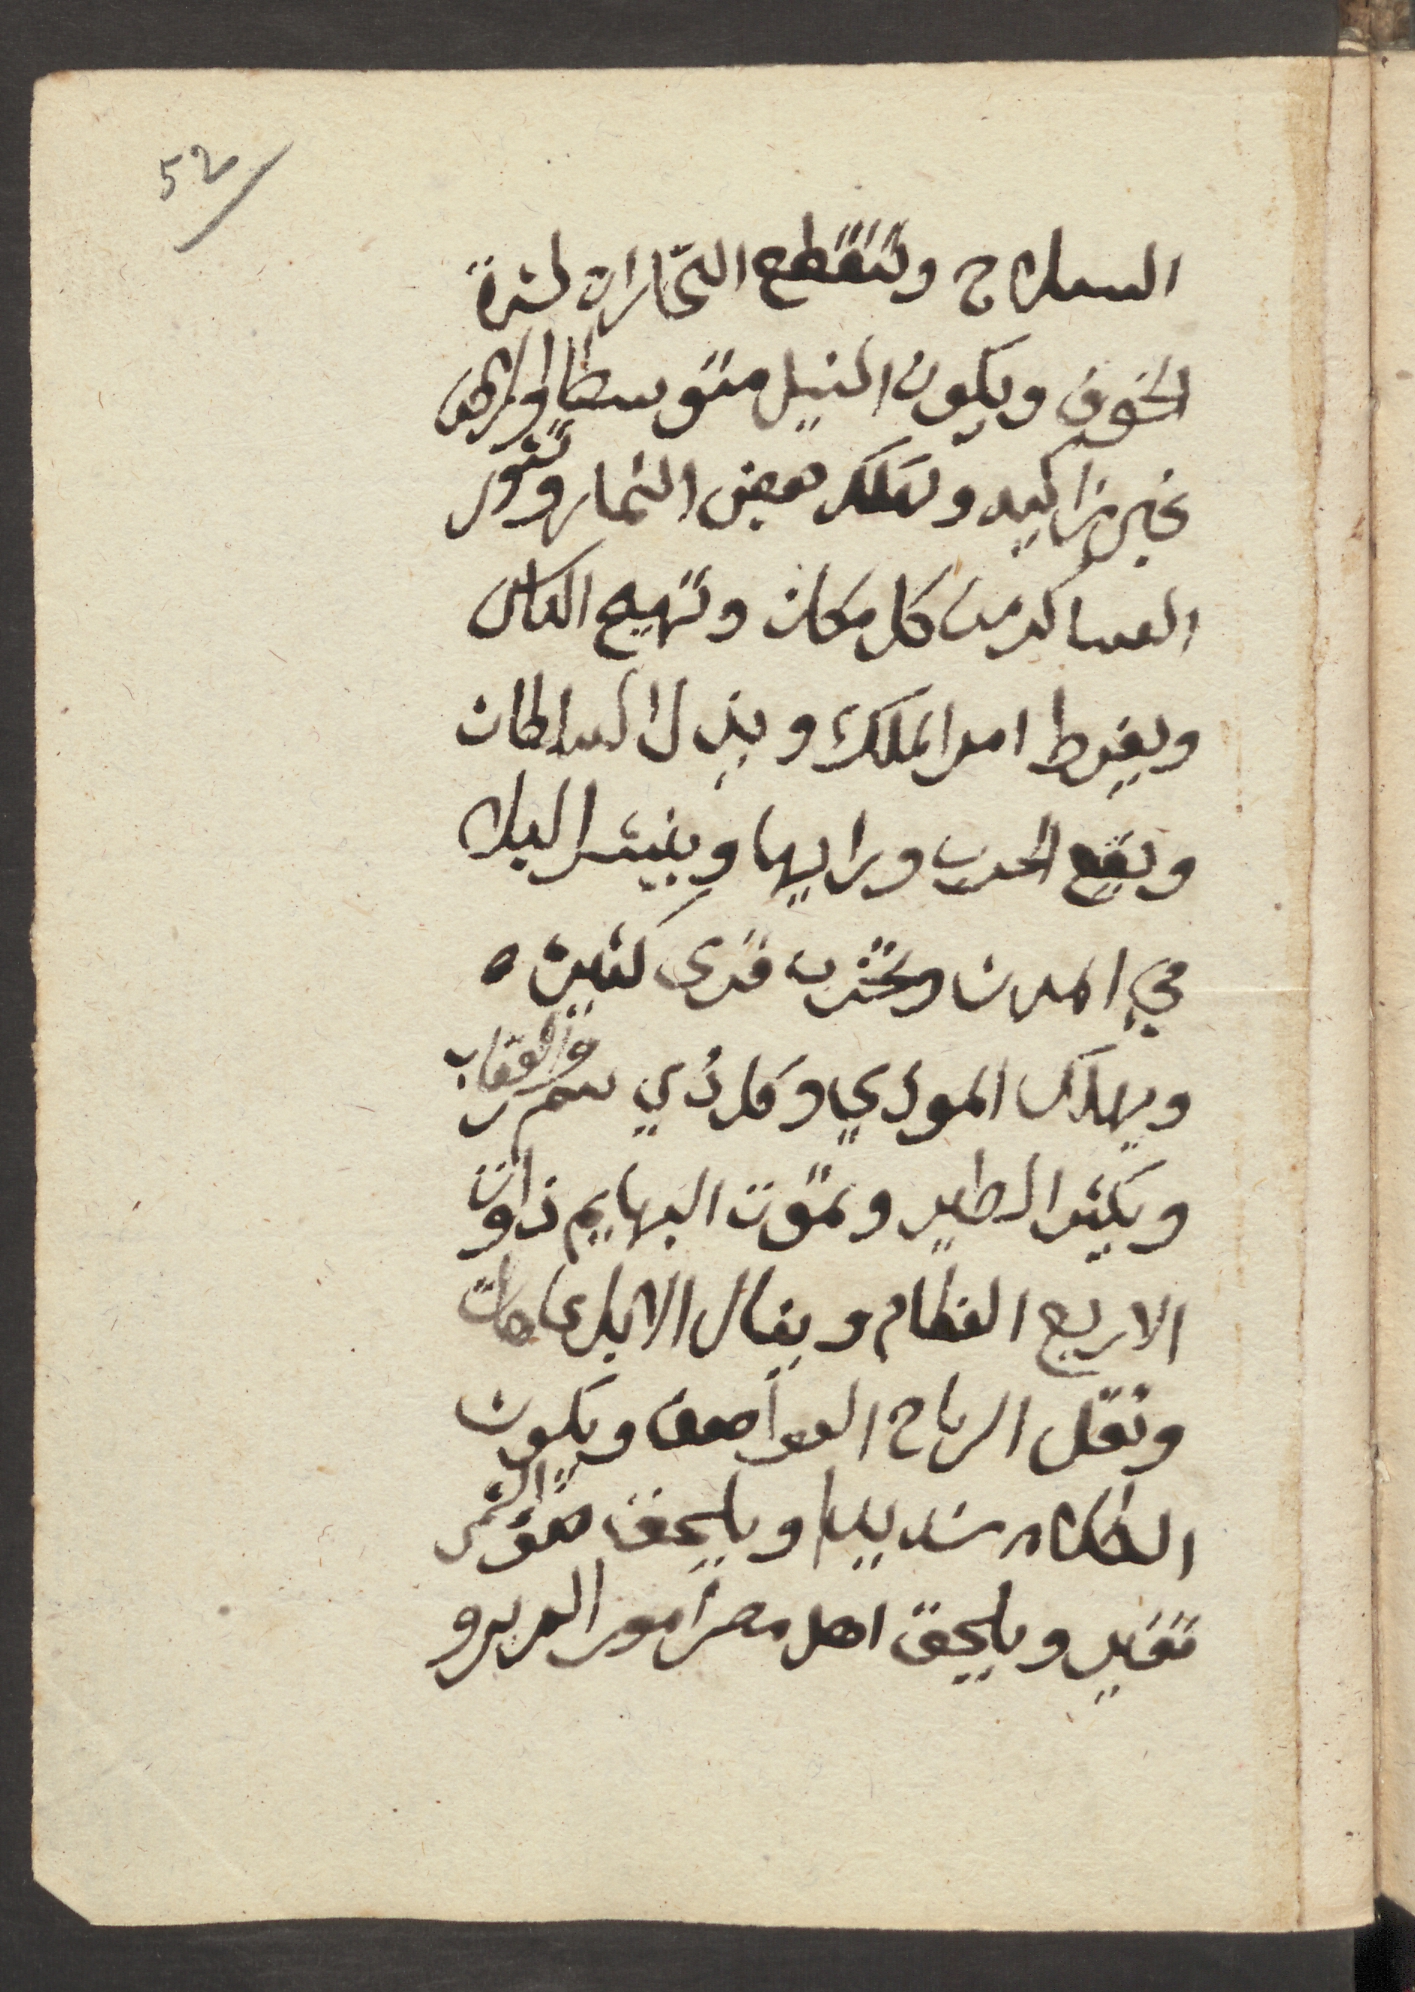 52
السلاح وتنقطع التجارات لشدة
الخوف ويكون النيل متوسطا والزكاه
غير زاكيه وتهلك بعض الثمار وتثور
العساكر من كل مكان وتهيج الناس
ويفرط امر الملك ويذل السلطان
ويقع الحرب وبراياها وينشر البلاء
في المدن وتخرب قرى كثيره
ويهلك الموذي وكل ذي سم والعقارب
ويكثر الطير وتموت البهايم ذوات
الاربع العظام ويقال الابل
وتقل الرياح العواصف ويكون
الظلام شديدا ويلحق ضو القمر
تغير ويلحق اهل مصر امور العدو